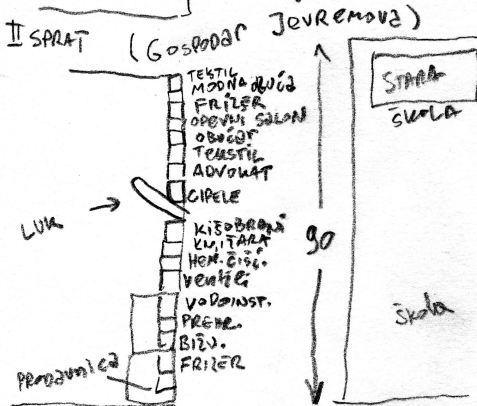 II SPRAT (Gospodar Jevremova)
TEKSTIL
MODNA obuća
FRIZER
ODEVNI SALON
OBUĆAR
TEKSTIL
ADVOKAT
CIPELE
LUK
KIŠOBRANI
KNJIŽARA
HEM. ČIŠĆ.
VODOINST.
PREHR.
BIŽU.
FRIZER
PRODAVNICA
90
STARA
ŠKOLA
škola